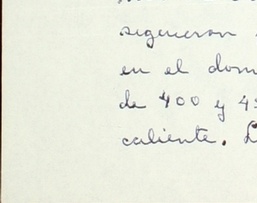 siguieron
en el dom
de 400 y 45
caliente. L